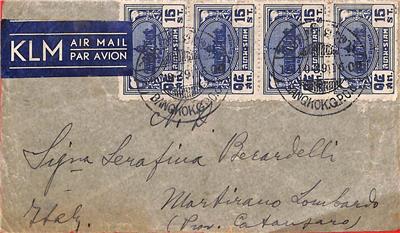 KLM AIR MAIL
PAR AVION
15 ST. 15 ST. 15 ST. 15 ST.
BANGKOK.G.P.O. BANGKOK.G.P.O.
Signa Serafina Berardelli
Martirano Lombardo
Italy. (Prov. Catanzaro)